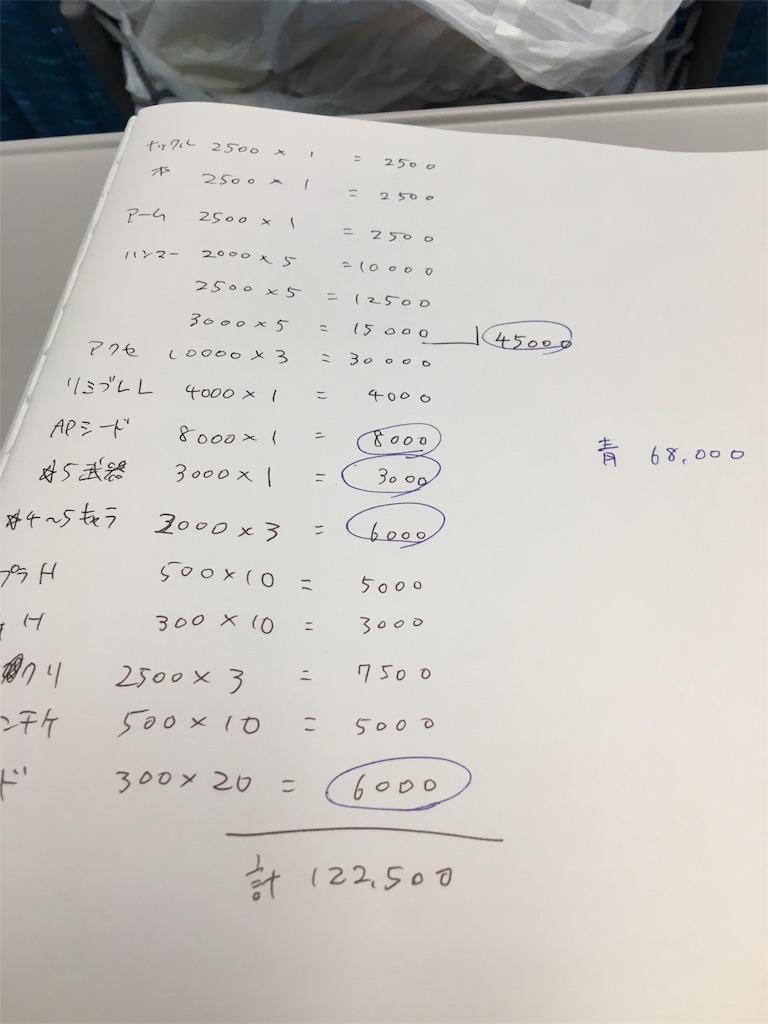 ナックル 2500 × 1 = 2500
本 2500 × 1 = 2500
アーム 2500 × 1 = 2500
ハンマー 2000 × 5 = 10000
2500 × 5 = 12500
3000 × 5 = 15000 45000
アクセ 10000 × 3 = 30000
リミブレL 4000 × 1 = 4000
APシード 8000 × 1 = 8000
青 68,000
☆5武器 3000 × 1 = 3000
☆4〜5キャラ 2000 × 3 = 6000
プラH 500 × 10 = 5000
H 300 × 10 = 3000
クリ 2500 × 3 = 7500
ンチケ 500 × 10 = 5000
ド 300 × 20 = 6000
計 122,500